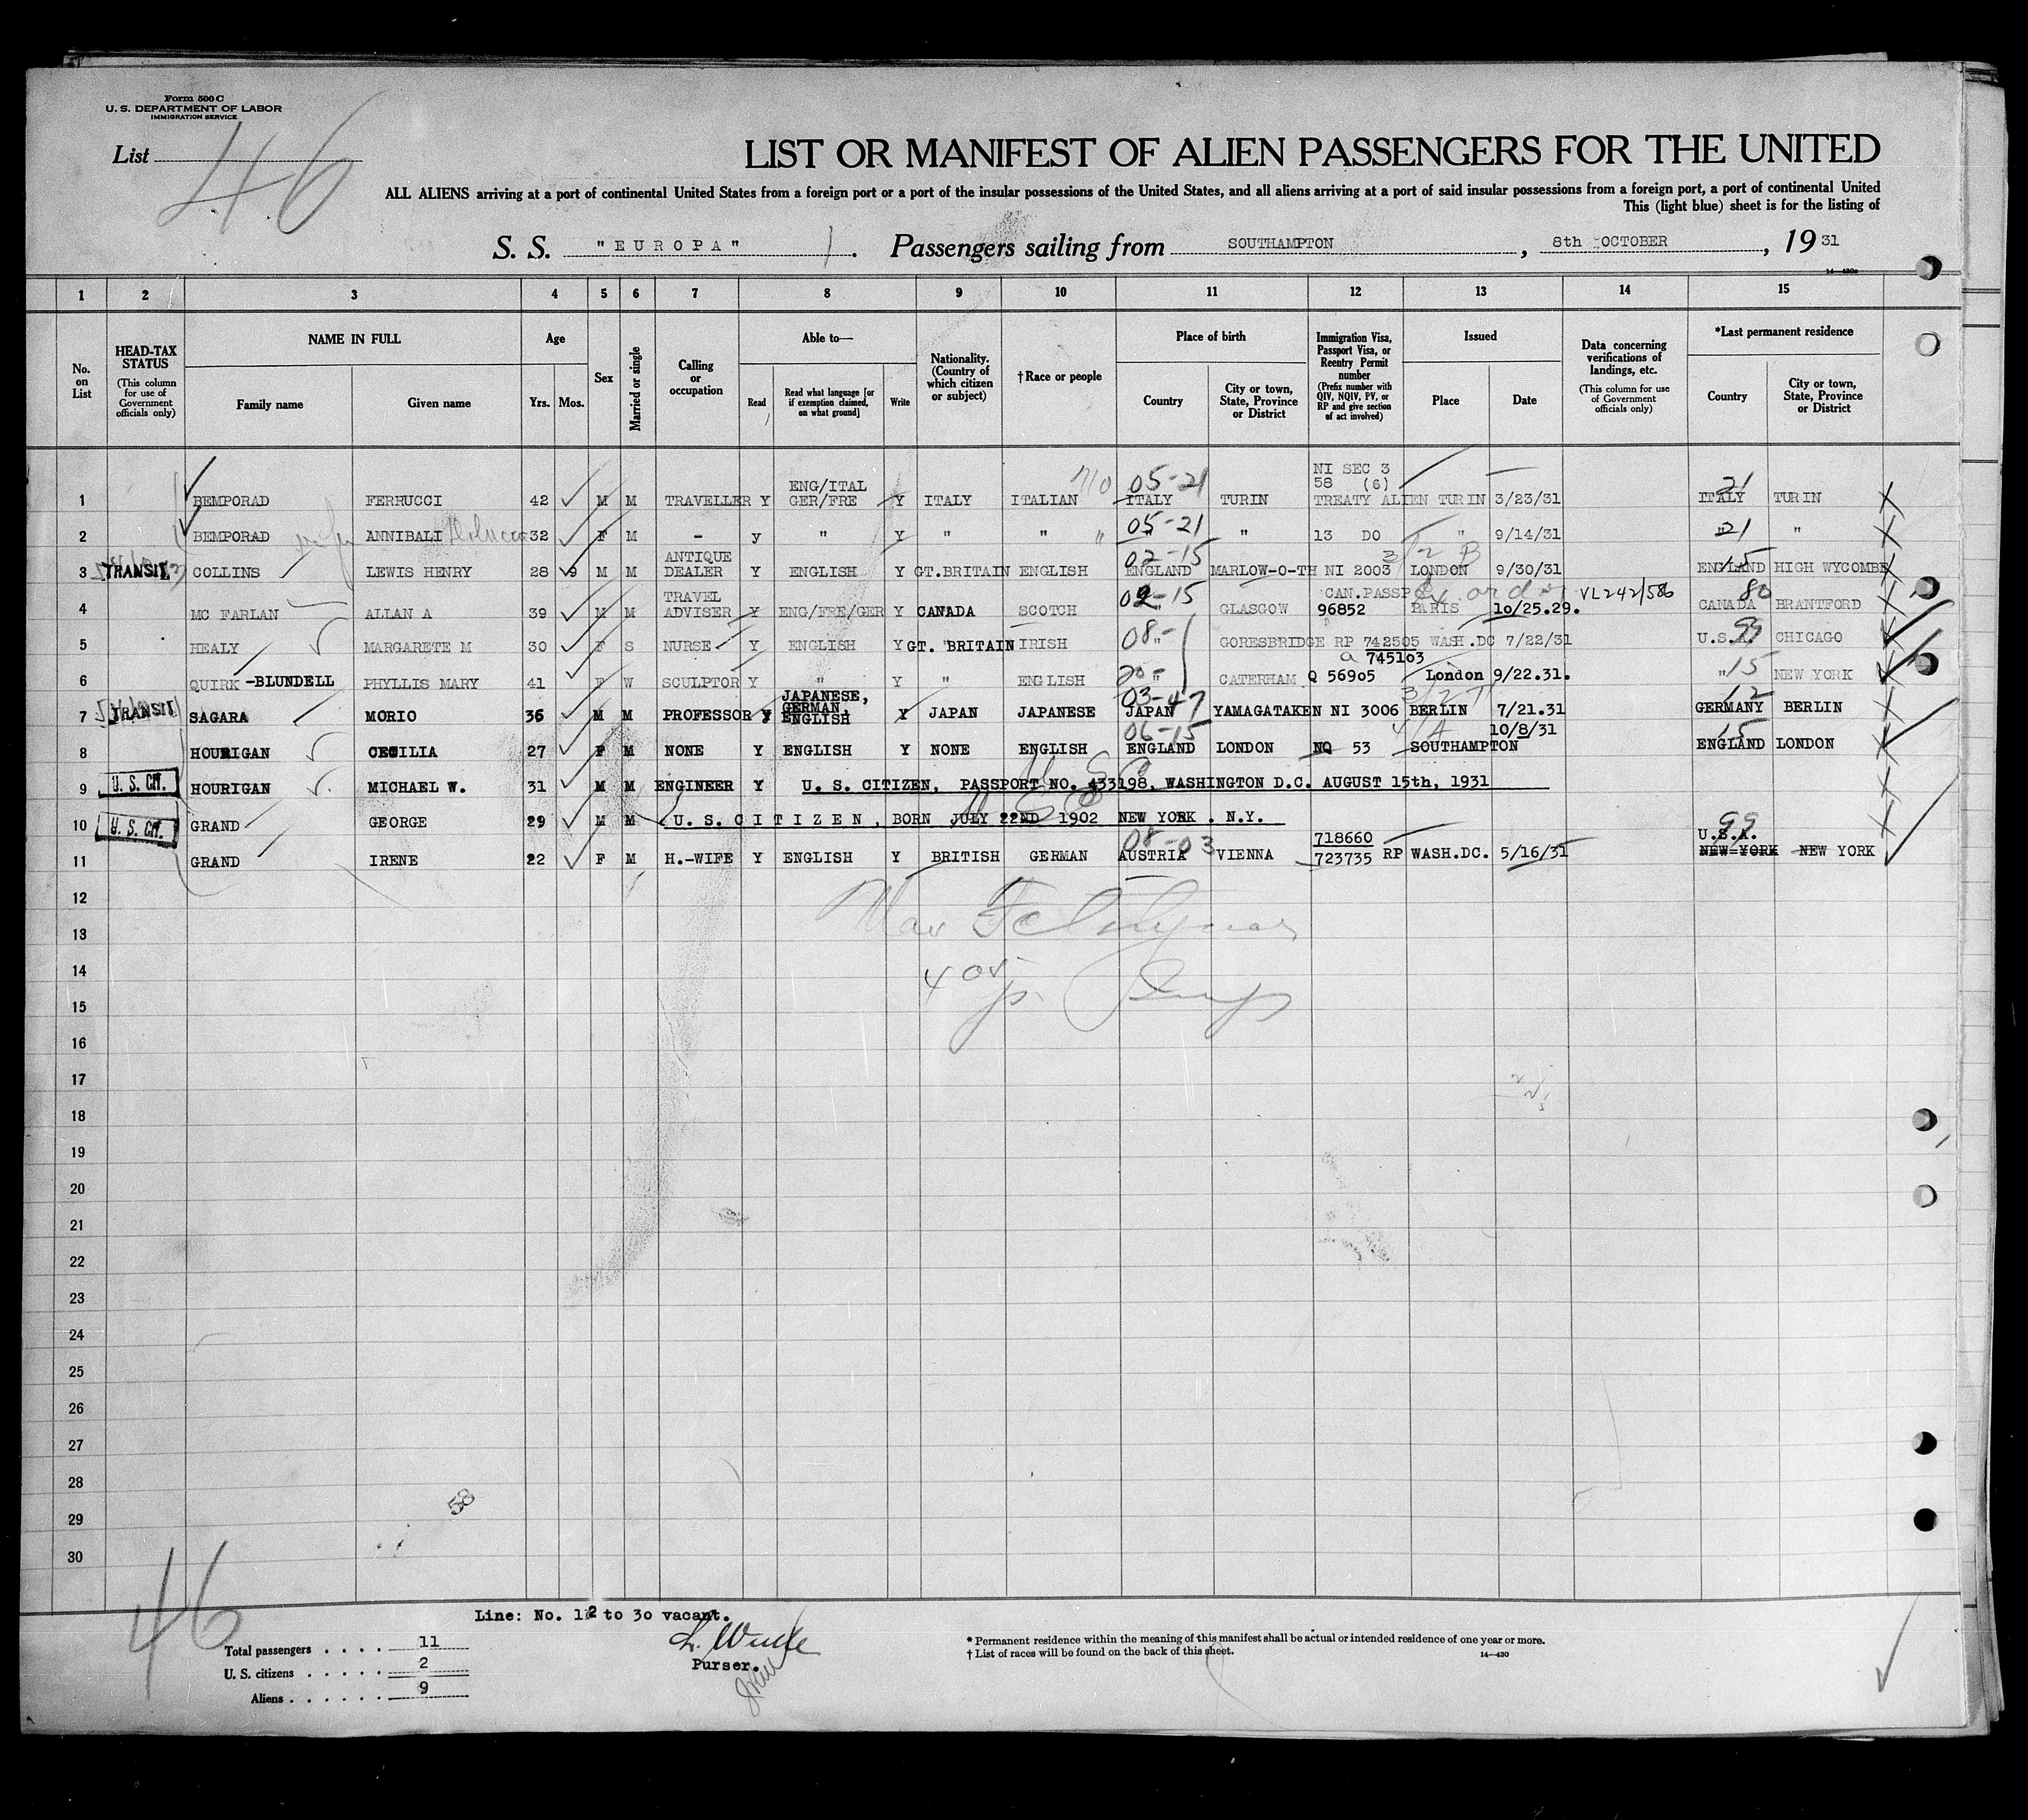 Form 500 C
U. S. DEPARTMENT OF LABOR
IMMIGRATION SERVICE
List 46
LIST OR MANIFEST OF ALIEN PASSENGERS FOR THE UNITED
ALL ALIENS arriving at a port of continental United States from a foreign port or a port of the insular possessions of the United States, and all aliens arriving at a port of said insular possessions from a foreign port, a port of continental United
This (light blue) sheet is for the listing of
S. S. "EUROPA" Passengers sailing from SOUTHAMPTON, 8th OCTOBER, 19 31
14—430c
1 2 3 4 5 6 7 8 9 10 11 12 13 14 15
No. on List
HEAD-TAX STATUS (This column for use of Government officials only)
NAME IN FULL
Family name Given name
Age
Yrs. Mos.
Sex
Married or single
Calling or occupation
Able to—
Read Read what language [or if exemption claimed, on what ground] Write
Nationality. (Country of which citizen or subject)
†Race or people
Place of birth
Country City or town, State, Province or District
Immigration Visa, Passport Visa, or Reentry Permit number (Prefix number with QIV, NQIV, PV, or RP and give section of act involved)
Issued
Place Date
Data concerning verifications of landings, etc. (This column for use of Government officials only)
*Last permanent residence
Country City or town, State, Province or District
NI SEC 3
ENG/ITAL 05-21 58 (6) 21
1 BEMPORAD FERRUCCI 42 M M TRAVELLER Y GER/FRE Y ITALY ITALIAN ITALY TURIN TREATY ALIEN TURIN 3/23/31 ITALY TURIN
05-21 21
2 BEMPORAD ANNIBALI 32 F M - y " Y " " " " 13 DO " 9/14/31 " "
ANTIQUE 02-15 15
3 TRANSIT COLLINS LEWIS HENRY 28 9 M M DEALER Y ENGLISH Y GT.BRITAIN ENGLISH ENGLAND MARLOW-O-TH NI 2003 LONDON 9/30/31 ENGLAND HIGH WYCOMBE
TRAVEL 02-15 CAN.PASSP VL242/586 80
4 MC FARLAN ALLAN A 39 M M ADVISER Y ENG/FRE/GER Y CANADA SCOTCH " GLASGOW 96852 PARIS 10/25.29. CANADA BRANTFORD
08- 99
5 HEALY MARGARETE M 30 F S NURSE Y ENGLISH Y GT. BRITAIN IRISH " GORESBRIDGE RP 742505 WASH.DC 7/22/31 U.S.A. CHICAGO
745103
15
6 QUIRK-BLUNDELL PHYLLIS MARY 41 F W SCULPTOR Y " Y " ENGLISH " CATERHAM Q 56905 London 9/22.31. " NEW YORK
JAPANESE, 03-47 12
GERMAN,
7 TRANSIT SAGARA MORIO 36 M M PROFESSOR Y ENGLISH Y JAPAN JAPANESE JAPAN YAMAGATAKEN NI 3006 BERLIN 7/21.31 GERMANY BERLIN
06-15 10/8/31 15
8 HOURIGAN CECILIA 27 F M NONE Y ENGLISH Y NONE ENGLISH ENGLAND LONDON NQ 53 SOUTHAMPTON ENGLAND LONDON
9 U. S. CIT. HOURIGAN MICHAEL W. 31 M M ENGINEER Y U. S. CITIZEN, PASSPORT NO. 433198, WASHINGTON D.C. AUGUST 15th, 1931
10 U. S. CIT. GRAND GEORGE 29 M M U.S.CITIZEN, BORN JULY 22ND 1902 NEW YORK, N.Y.
08-03 718660 99
U.S.A.
11 GRAND IRENE 22 F M H.-WIFE Y ENGLISH Y BRITISH GERMAN AUSTRIA VIENNA 723735 RP WASH.DC. 5/16/31 NEW YORK NEW YORK
12
13
14
15
16
17
18
19
20
21
22
23
24
25
26
27
28
29
30
58
46
Line: No. 12 to 30 vacant.
Total passengers . . . . 11
U. S. citizens . . . . . 2
Aliens . . . . . . 9
Purser.
* Permanent residence within the meaning of this manifest shall be actual or intended residence of one year or more.
† List of races will be found on the back of this sheet.
14—430